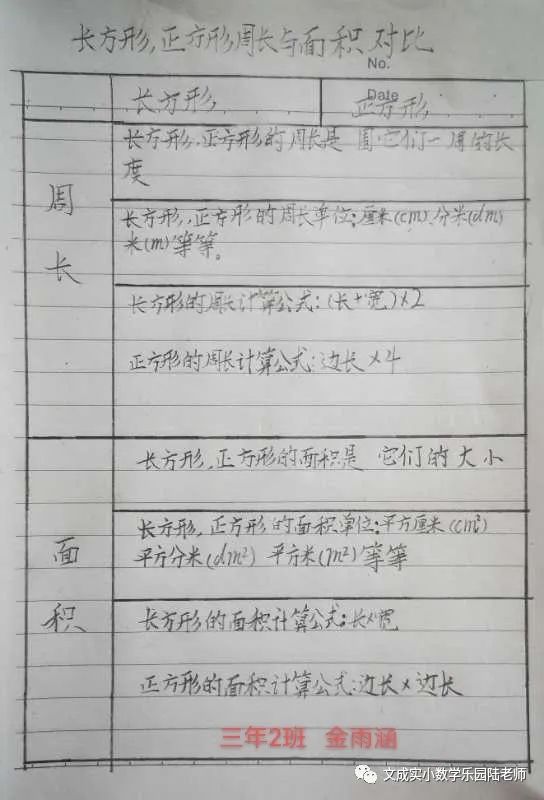 长方形,正方形周长与面积对比
No.
Date
长方形
正方形
长方形,正方形的周长是 围它们一周的长
度
周长
长方形,正方形的周长单位:厘米(cm)、分米(dm)
米(m)等等。
长方形的周长计算公式:(长+宽)×2
正方形的周长计算公式:边长×4
长方形,正方形的面积是 它们的大小
面积
长方形,正方形的面积单位:平方厘米(cm²)
平方分米(dm²) 平方米(m²)等等
长方形的面积计算公式:长×宽
正方形的面积计算公式:边长×边长
三年2班 金雨涵
文成实小数学乐园陆老师